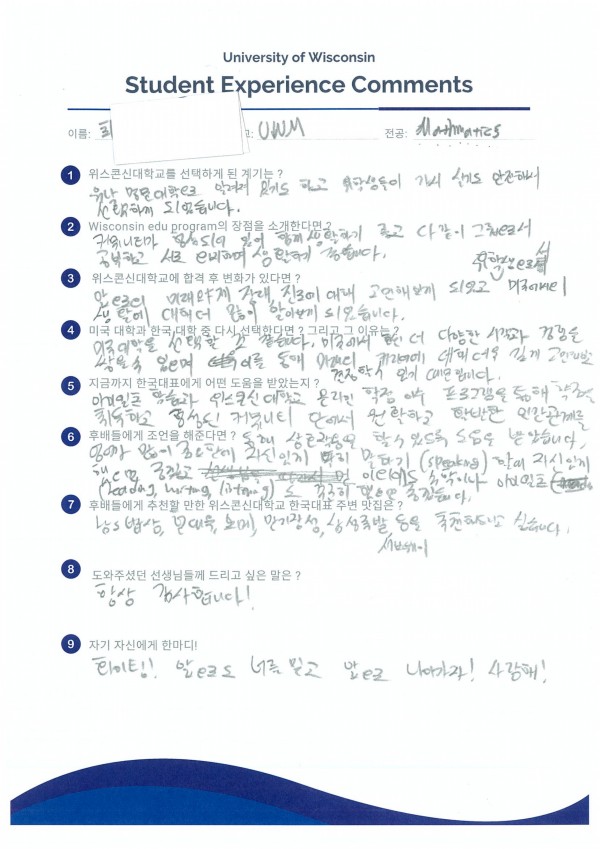 University of Wisconsin
Student Experience Comments
이름: 최 교: UWM 전공: Mathmatics
1 위스콘신대학교를 선택하게 된 계기는 ?
워낙 명문대학으로 알려져 있기도 하고 유학생들이 가서 살기도 안전해서
선택하게 되었습니다.
2 Wisconsin edu program의 장점을 소개한다면 ?
커뮤니티가 형성되어 있어 함께 생활하기 좋고 다같이 그룹으로서
공부하고 서로 의지하며 생활한게 좋습니다.
3 위스콘신대학교에 합격 후 변화가 있다면 ? 유학생으로서
앞으로의 미래 장래, 진로에 대해 고민해보게 되었고 미국에서의
생활에 대해 더 많이 알아보게 되었습니다.
4 미국 대학과 한국 대학 중 다시 선택한다면 ? 그리고 그 이유는 ?
미국대학을 선택할 것 같습니다. 미국에서 더 다양한 시각과 경험을
쌓을 수 있으며 이를 통해 커리어에 대해 더욱 깊게 고민해보고
결정할 수 있기 때문입니다.
5 지금까지 한국대표에게 어떤 도움을 받았는지 ?
아이엘프 등등과 위스콘신 대학교 온라인 학점 이수 프로그램을 통해 학점을
취득하고 형성된 커뮤니티 안에서 원활하고 활발한 인간관계를
6 후배들에게 조언을 해준다면 ? 통해 상호작용을 할 수 있도록 도움을 받았습니다.
영어가 많이 중요한데 자신있게 말하기 (speaking) 할때 자신있게
해도 좋고 및 이엘츠 아이엘프
(reading, writing, listening) 도 꾸준히 했으면 좋겠습니다.
7 후배들에게 추천할 만한 위스콘신대학교 한국대표 주변 맛집은 ?
남도밥상, 본대육, 만리장성, 삼성족발 등을 추천해드리고 싶습니다.
서브웨이
8 도와주셨던 선생님들께 드리고 싶은 말은 ?
항상 감사합니다!
9 자기 자신에게 한마디!
화이팅! 앞으로도 너를 믿고 앞으로 나아가자! 사랑해!